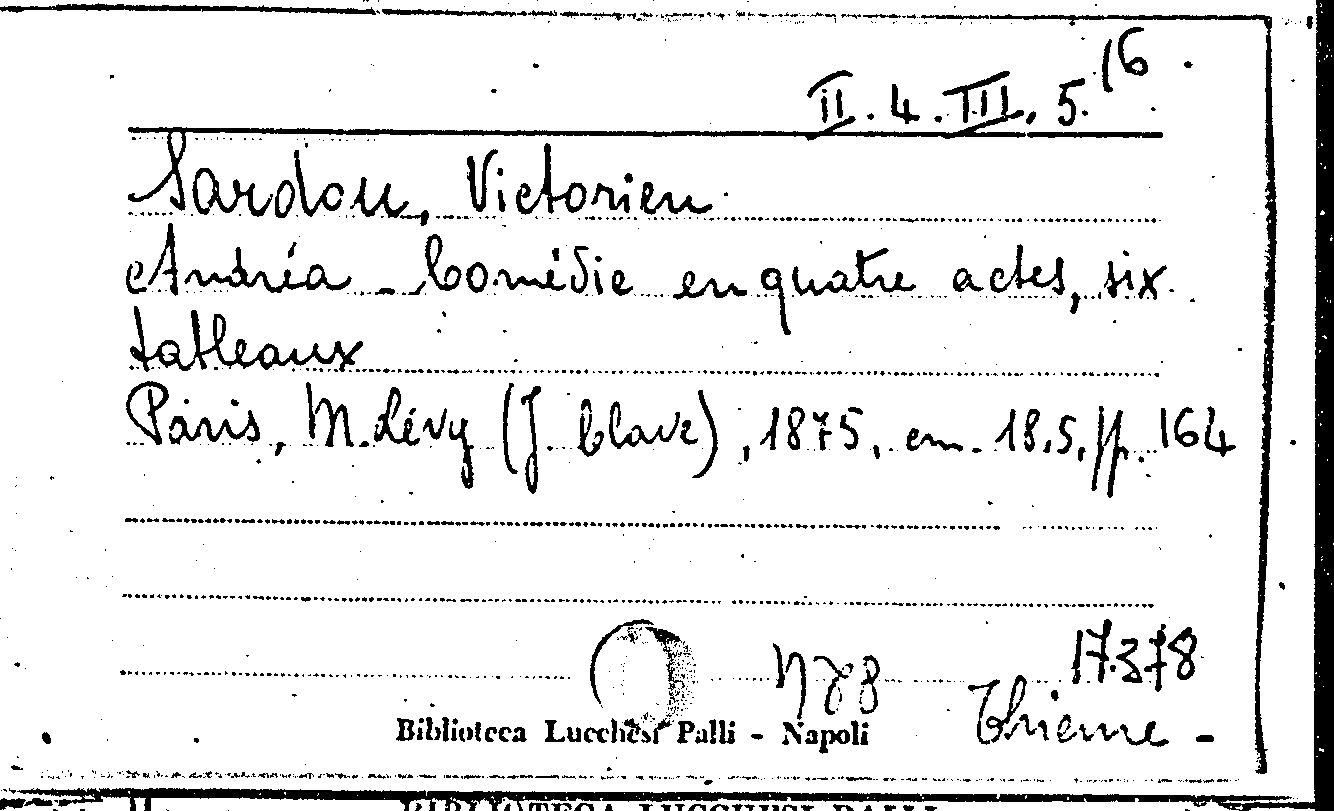 II. 4. III. 5.16.
Sardou, Victorien
Andréa - Comédie en quatre actes, six
tableaux
Paris, M. Lévy (J. Clave), 1875, cm. 18.5, pp. 164
17.378
Biblioteca Lucchesi Palli - Napoli
Thieme -
BIBLIOTECA LUCCHESI PALLI